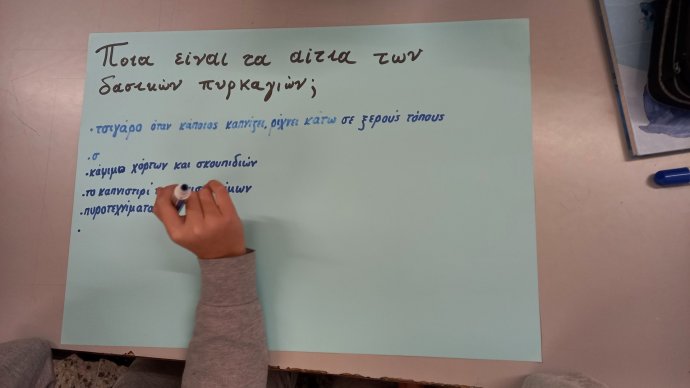 Ποια είναι τα αίτια των
δασικών πυρκαγιών;
• τσιγάρο όταν κάποιος καπνίζει, ρίχνει κάτω σε ξερούς τόπους
• σ
• κάψιμο χόρτων και σκουπιδιών
• το καπνιστιρί
• πυροτεχνίματα
•